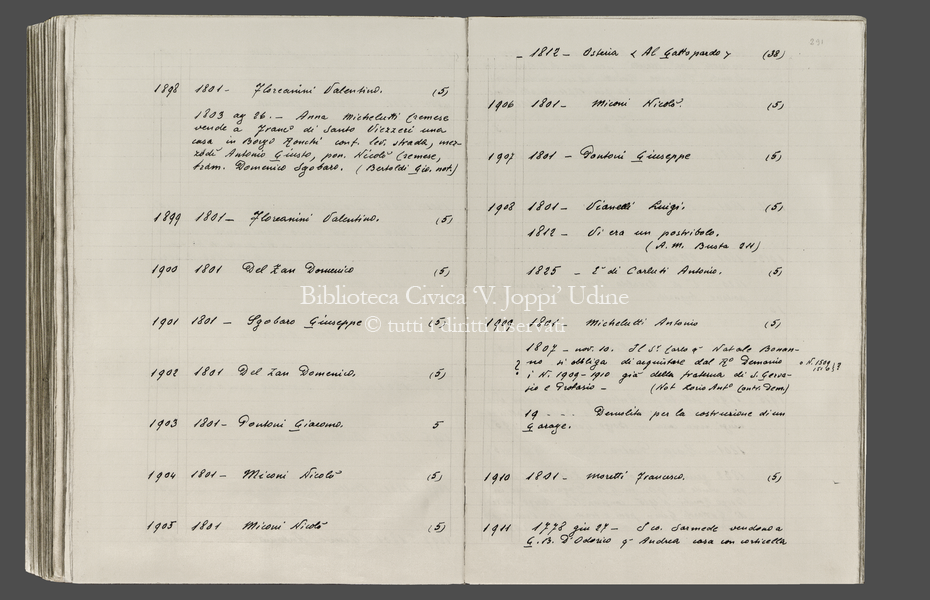 1898 1801 - Floreanini Valentino. (5)
1803 ag 26. - Anna Michelutti Cremese
vende a Franco di Santo Viezzeri una
casa in Borgo Ronchi conf. lev. strada, mez-
zodi Antonio Giusto, pon. Nicolò Cremese,
tram. Domenico Sgobaro. (Bertoldi Gio. not.)
1899 1801 - Floreanini Valentino. (5)
1900 1801 Del Zan Domenico (5)
1901 1801 - Sgobaro Giuseppe (5)
1902 1801 Del Zan Domenico. (5)
1903 1801 - Pontoni Giacomo. 5
1904 1801 - Miconi Nicolò (5)
1905 1801 Miconi Nicolò (5)
291
- 1812 - Osteria < Al Gattopardo > (38)
1906 1801 - Miconi Nicolò (5)
1907 1801 - Pontoni Giuseppe (5)
1908 1801 - Vianelli Luigi. (5)
1812 - Vi era un postribolo.
(A.M. Busta 211)
1825 - È di Carluti Antonio. (5)
1909 1801 - Michelutti Antonio (5)
1807 - nov. 10. Il Sr Carlo q Natale Bonan-
no si obbliga di acquistare dal Ro Demanio
i N. 1909-1910 già della fraterna di S. Gerva-
sio e Protasio - (Not Antº Contr. Dem.)
19 - - - Demolita per la costruzione di un
Garage.
1910 1801 - Moretti Francesco. (5)
1911 1778 giu 27 - vendono a
G.B. D'Odorico q Andrea casa con corticella
Biblioteca Civica 'V. Joppi' Udine
© tutti i diritti riservati